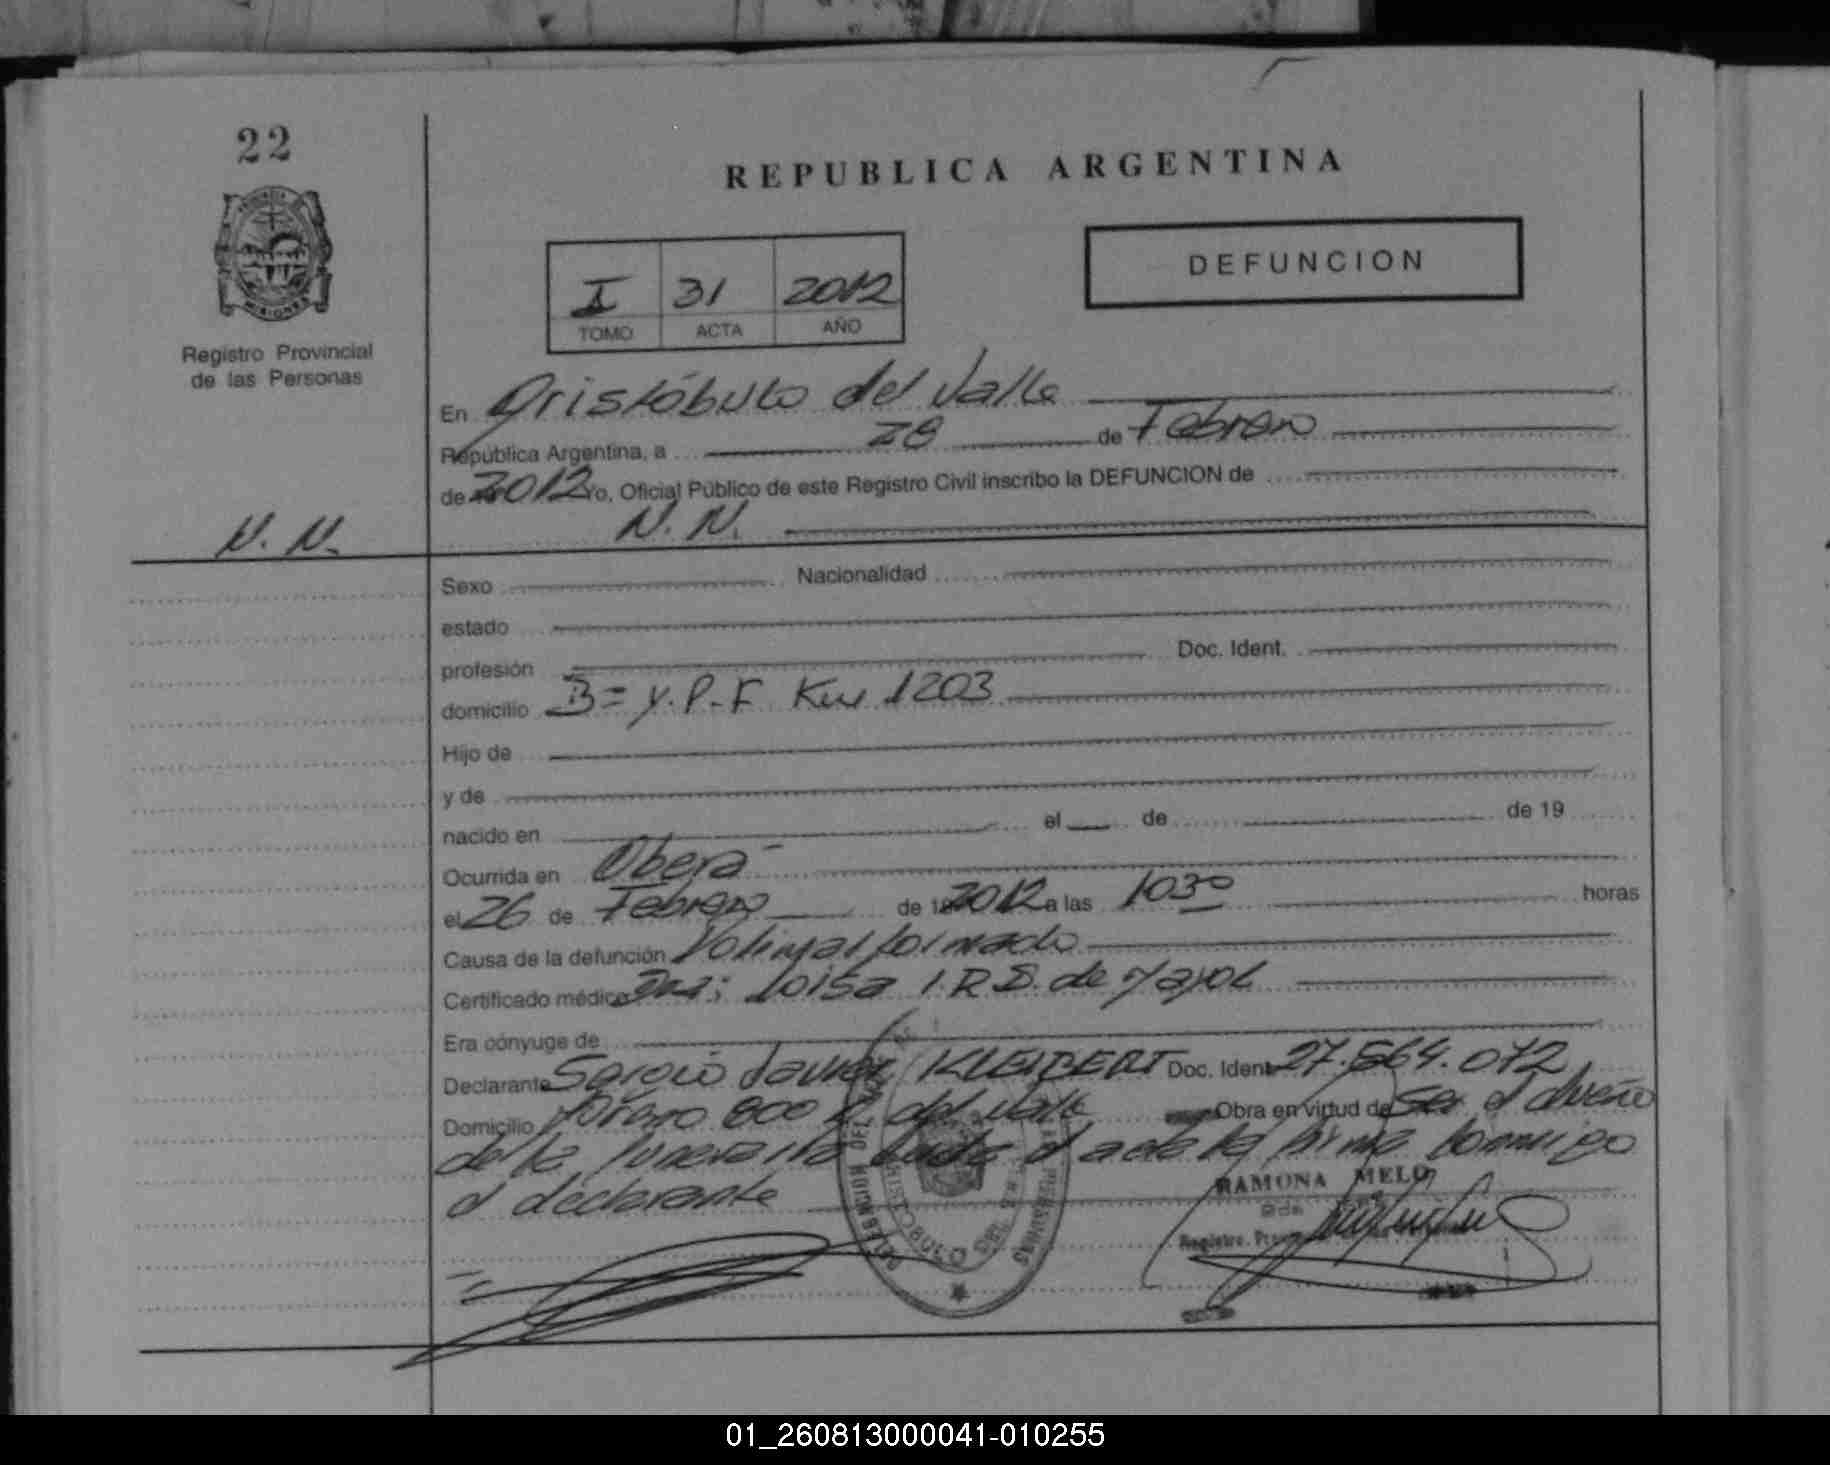 22
REPUBLICA ARGENTINA
DEFUNCION
I 31 2012
TOMO ACTA AÑO
Registro Provincial
de las Personas
En Aristóbulo del Valle
República Argentina, a 28 de Febrero
de 2012 Yo, Oficial Público de este Registro Civil inscribo la DEFUNCION de
N. N.
N. N.
Sexo Nacionalidad
estado
profesión Doc. Ident.
domicilio B= Y.P.F. Km 1203
Hijo de
y de
nacido en el de de 19
Ocurrida en Oberá
el 26 de Febrero de 2012 a las 1030 horas
Causa de la defunción
Certificado médico Luisa de
Era cónyuge de
Declarante Sergio Javier Doc. Ident. 27.564.072
Domicilio 800 A. del Valle Obra en virtud de ser el dueño
de la funeraria el acta la firma conmigo
el declarante
RAMONA MELO
01_260813000041-010255